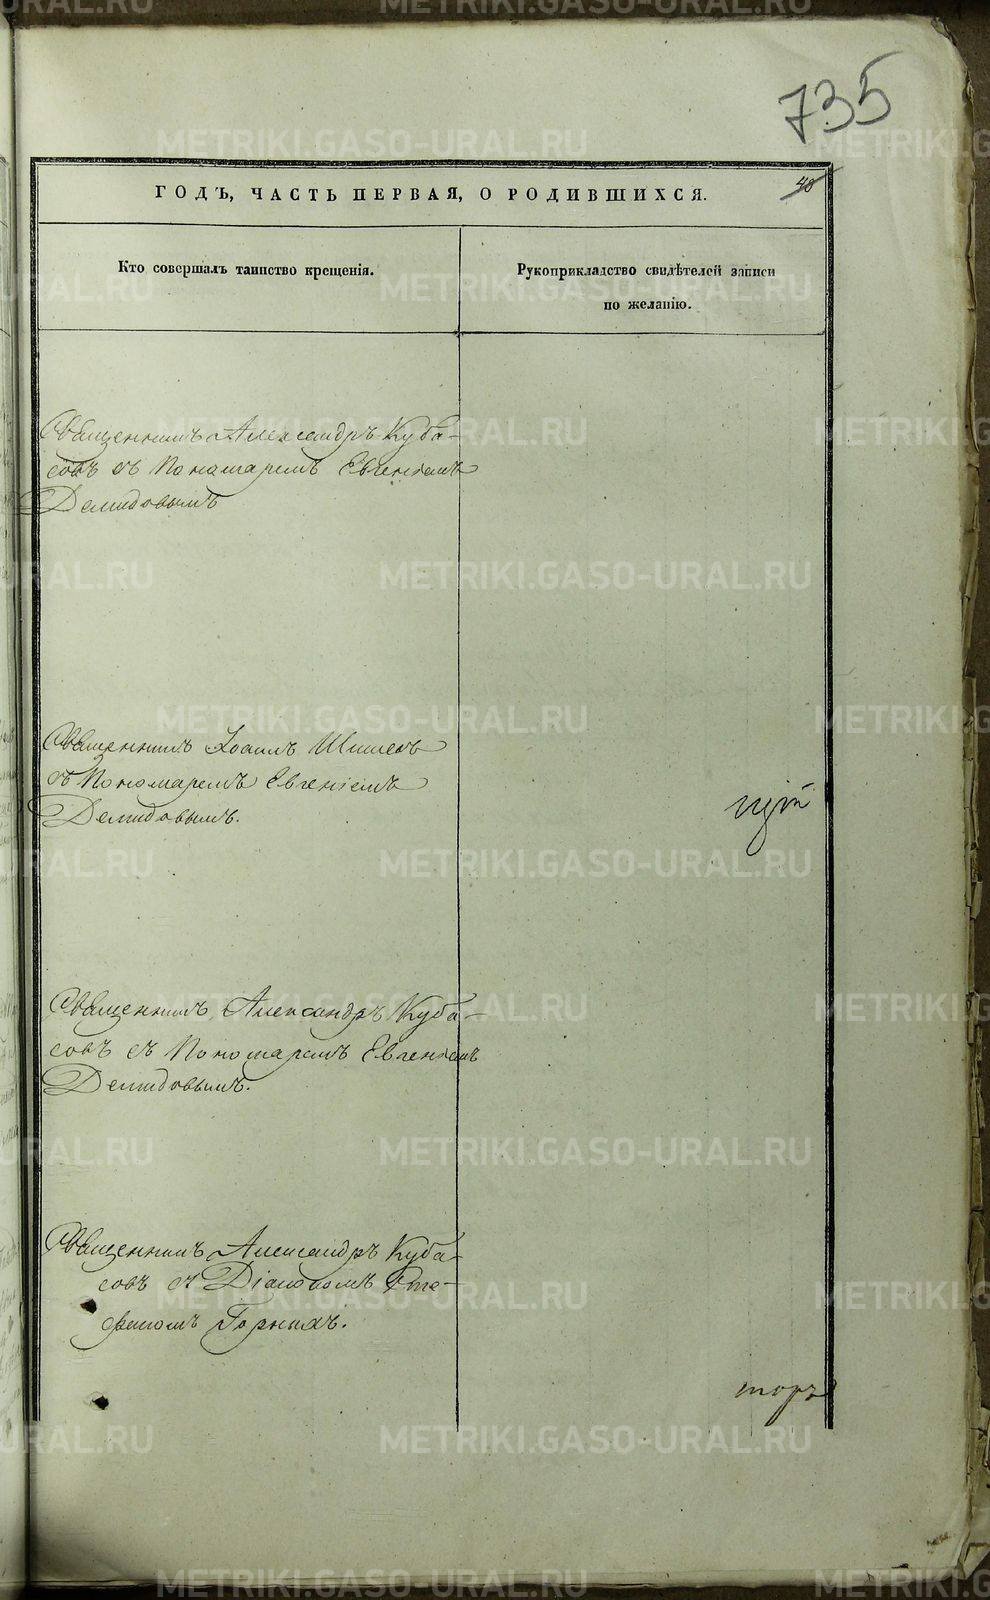 735
40
ГОДЪ, ЧАСТЬ ПЕРВАЯ, О РОДИВШИХСЯ.
Кто совершалъ таинство крещенія.
Рукоприкладство свидѣтелей записи
по желанію.
Священникъ Александръ Куба-
совъ съ Пономаремъ Евгеніемъ
Демидовымъ
Священникъ Іоаннъ Шишевъ
съ Пономаремъ Евгеніемъ
Демидовымъ.
Священникъ Александръ Куба-
совъ съ Пономаремъ Евгеніемъ
Демидовымъ.
Священникъ Александръ Куба-
совъ съ Діакономъ Сте-
фаномъ Горныхъ.
торъ
METRIKI.GASO-URAL.RU